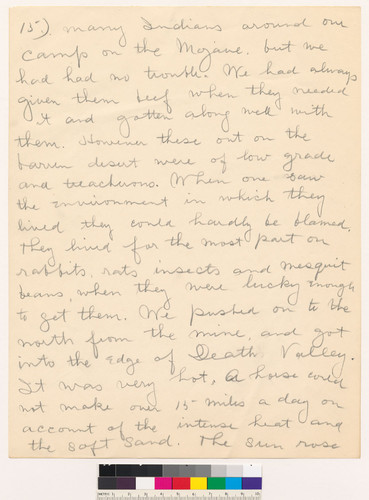 15-) many Indians around our
camp on the Mojave, but we
had had no trouble. We had always
given them beef when they needed
it and gotten along well with
them. However these out on the
barren desert were of low grade
and treacherous. When one saw
the environment in which they
lived they could hardly be blamed.
They lived for the most part on
rabbits, rats insects and mesquit
beans, when they were lucky enough
to get them. We pushed on to the
north from the mine, and got
into the edge of Death Valley.
It was very hot, A horse could
not make over 15 miles a day on
account of the intense heat and
the soft sand. The sun rose